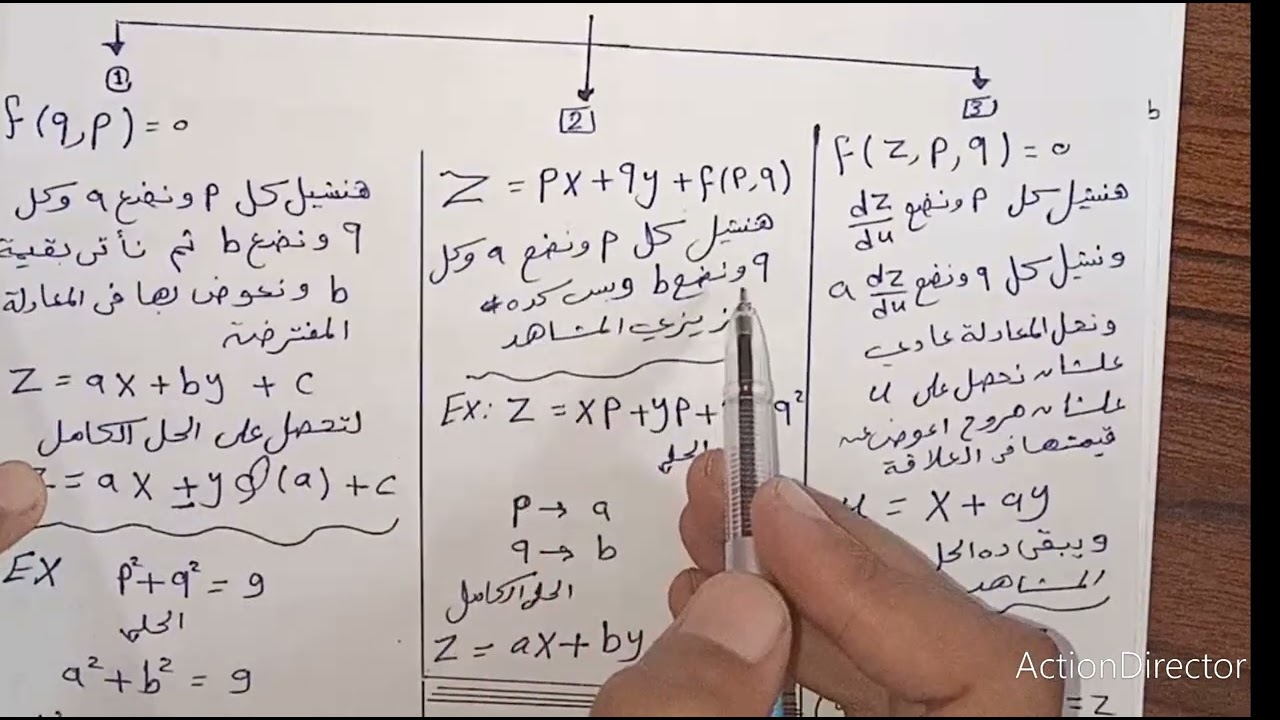 1
f(q,p) = 0
هنشيل كل p ونضع a وكل
q ونضع b ثم نأتى بقيمة
b ونعوض بها فى المعادلة
المفترضة
Z = ax + by + c
لتحصل على الحل الكامل
Z = ax ± y φ(a) + c
EX p² + q² = 9
الحل
a² + b² = 9
2
Z = px + qy + f(p,q)
هنشيل كل p ونضع a وكل
q ونضع b وبس كده
عزيزي المشاهد
Ex: Z = xp + yp + q²
الحل
p → a
q → b
الحل الكامل
Z = ax + by
3
b
f(z,p,q) = 0
هنشيل كل p ونضع dz/du
ونشيل كل q ونضع a dz/du
ونحل المعادلة عادي
علشان نحصل على u
علشان هروح اعوض عن
قيمتها فى العلاقة
u = x + ay
ويبقى ده الحل
المشاهد
= z
ActionDirector